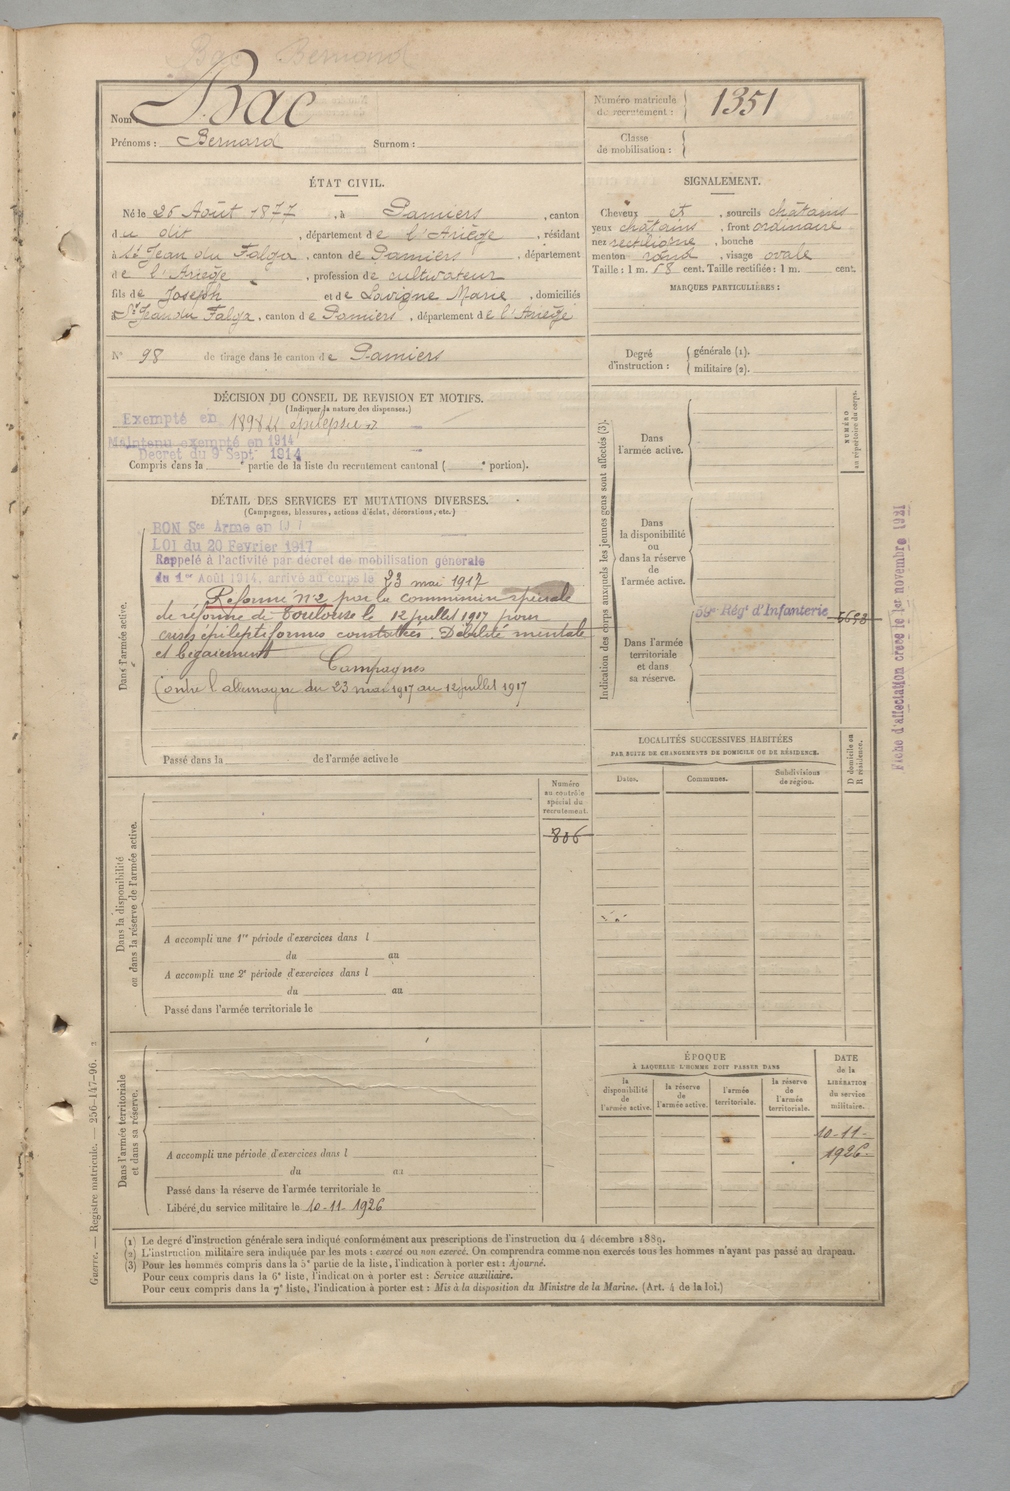 Bac Bernard
Nom : Bac
Prénoms : Bernard Surnom :
Numéro matricule du recrutement : 1351
Classe de mobilisation :
ÉTAT CIVIL.
Né le 26 Août 1877, à Pamiers, canton
du dit, département de l'Ariège, résidant
à St Jean du Falga, canton de Pamiers, département
de l'Ariège, profession de cultivateur
fils de Joseph et de Lavigne Marie, domiciliés
à St Jean du Falga, canton de Pamiers, département de l'Ariège
N° 98 de tirage dans le canton de Pamiers
SIGNALEMENT.
Cheveux et, sourcils châtains
yeux châtains, front ordinaire
nez rectiligne, bouche
menton rond, visage ovale
Taille : 1 m. 58 cent. Taille rectifiée : 1 m. cent.
MARQUES PARTICULIÈRES :
Degré d'instruction : générale (1).
militaire (2).
DÉCISION DU CONSEIL DE REVISION ET MOTIFS.
(Indiquer la nature des dispenses.)
Exempté en 1898 épilepsie
Maintenu exempté en 1914
Décret du 9 Sept 1914
Compris dans la ° partie de la liste du recrutement cantonal ( ° portion).
DÉTAIL DES SERVICES ET MUTATIONS DIVERSES.
(Campagnes, blessures, actions d'éclat, décorations, etc.)
Dans l'armée active.
BON Sce Armé en 191
LOI du 20 Février 1917
Rappelé à l'activité par décret de mobilisation générale
du 1er Août 1914, arrivé au corps le 23 mai 1917
Réformé n°2 par la commission spéciale
de réforme de Toulouse le 12 juillet 1917 pour
crises épileptiformes constatées. Débilité mentale
et bégaiement
Campagnes
Contre l'allemagne du 23 mai 1917 au 12 juillet 1917
Passé dans la de l'armée active le
Indication des corps auxquels les jeunes gens sont affectés (3).
NUMÉRO au répertoire du corps.
Dans l'armée active.
Dans la disponibilité ou dans la réserve de l'armée active.
Dans l'armée territoriale et dans sa réserve.
59e Régt d'Infanterie
Fiche d'affectation créée le 1er novembre 1921
LOCALITÉS SUCCESSIVES HABITÉES
PAR SUITE DE CHANGEMENTS DE DOMICILE OU DE RÉSIDENCE.
Dates. Communes. Subdivisions de région. D domicile ou R résidence.
Numéro au contrôle spécial du recrutement.
806
Dans la disponibilité ou dans la réserve de l'armée active.
A accompli une 1re période d'exercices dans l
du au
A accompli une 2e période d'exercices dans l
du au
Passé dans l'armée territoriale le
Dans l'armée territoriale et dans sa réserve.
A accompli une période d'exercices dans l
du au
Passé dans la réserve de l'armée territoriale le
Libéré du service militaire le 10-11-1926
ÉPOQUE
À LAQUELLE L'HOMME DOIT PASSER DANS
la disponibilité de l'armée active. la réserve de l'armée active. l'armée territoriale. la réserve de l'armée territoriale.
DATE de la LIBÉRATION du service militaire.
10-11-
1926
(1) Le degré d'instruction générale sera indiqué conformément aux prescriptions de l'instruction du 4 décembre 1889.
(2) L'instruction militaire sera indiquée par les mots : exercé ou non exercé. On comprendra comme non exercés tous les hommes n'ayant pas passé au drapeau.
(3) Pour les hommes compris dans la 5e partie de la liste, l'indication à porter est : Ajourné.
Pour ceux compris dans la 6e liste, l'indication à porter est : Service auxiliaire.
Pour ceux compris dans la 7e liste, l'indication à porter est : Mis à la disposition du Ministre de la Marine. (Art. 4 de la loi.)
Guerre. — Registre matricule. — 256-147-96.